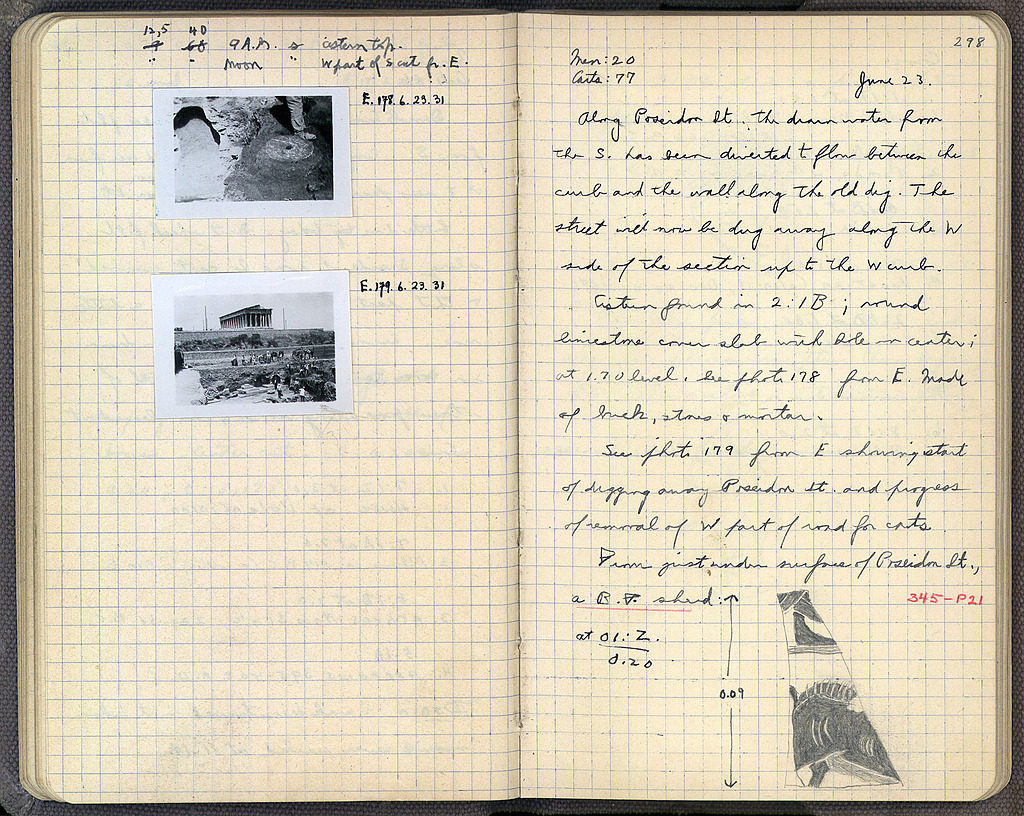 12,5 40
9 68 9 A.M. s cistern top.
" " Moon " W part of s cut fr. E.
E. 178. 6. 23. 31
E. 179. 6. 23. 31
298
Men: 20
Carts: 77
June 23.
Along Poseidon St. the drain water from
the S. has been diverted to flow between the
curb and the wall along the old dig. The
street will now be dug away along the W
side of the section up to the W curb.
Cistern found in 2:1B; round
limestone cover slab with hole in center;
at 1.70 level. See photo 178 from E. Made
of brick, stones & mortar.
See photo 179 from E showing start
of digging away Poseidon St. and progress
of removal of W part of road for carts.
From just under surface of Poseidon St.,
a B.F. sherd:
345-P21
at 01:Z.
0.20
0.09